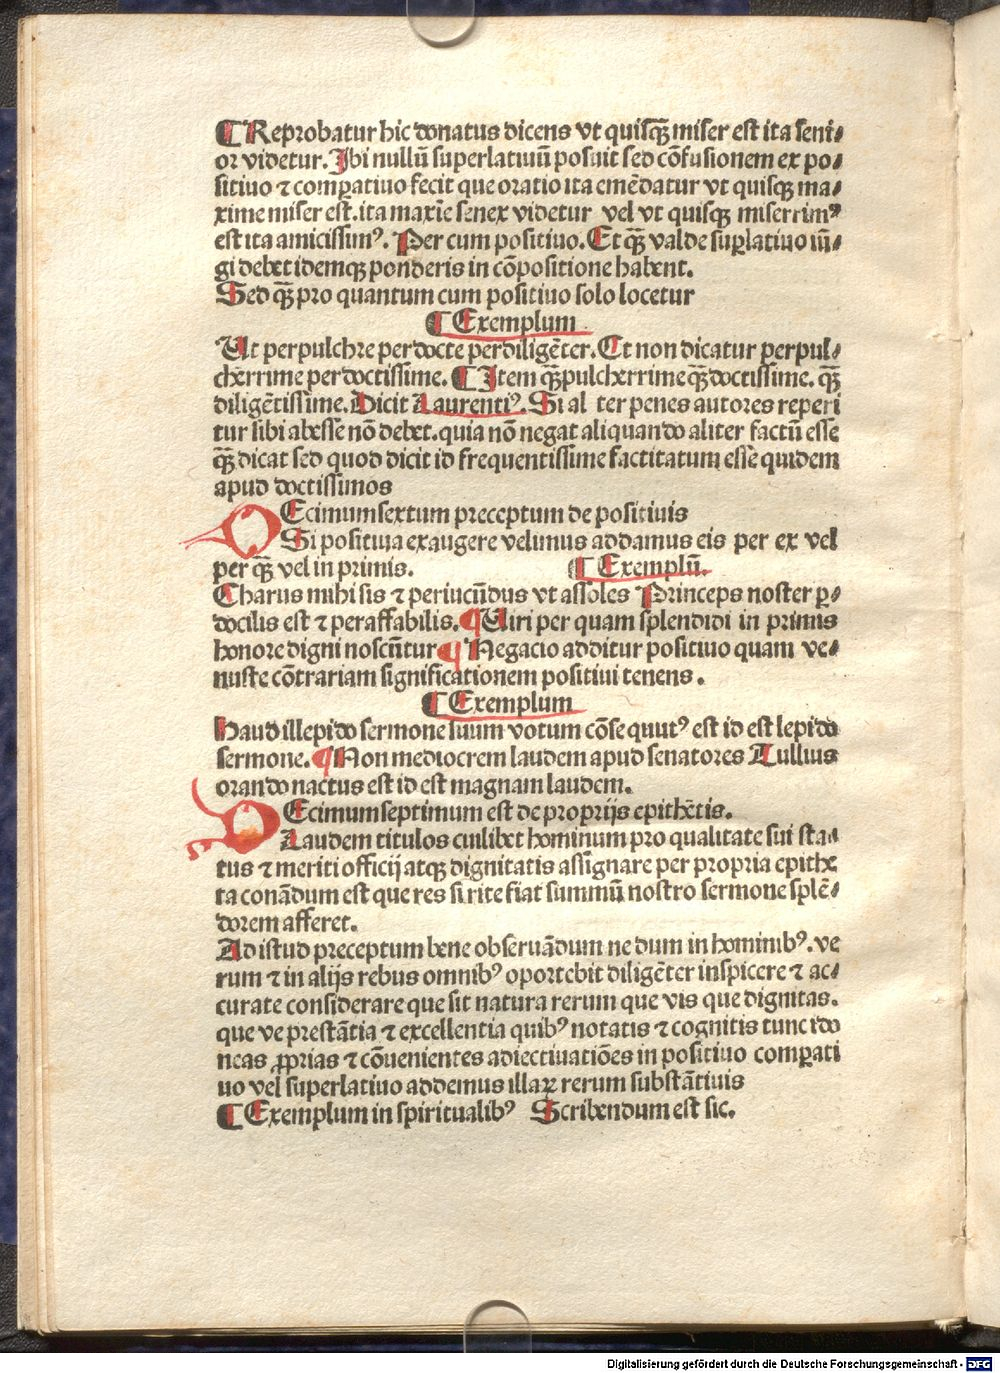 ¶ Reprobatur hic donatus dicens vt quisq̃ miser est ita seni⸗
or videtur. Ibi nullũ superlatiuũ posuit sed cõfusionem ex po⸗
sitiuo ⁊ comꝑatiuo fecit que oratio ita emẽdatur vt quisqꝫ ma⸗
xime miser est. ita maxĩe senex videtur vel vt quisqꝫ miserrimꝰ
est ita amicissimꝰ. Per cum positiuo. Et q̃ valde suꝑlatiuo iũ⸗
gi debet idemqꝫ ponderis in cõpositione habent.
Sed q̃ pro quantum cum positiuo solo locetur
¶ Exemplum
Ut perpulchre perdocte perdiligẽter. Et non dicatur perpul⸗
cherrime perdoctissime. ¶ Item q̃pulcherrime q̃doctissime. q̃
diligẽtissime. Dicit Laurentiꝰ. Si al ter penes autores reperi
tur sibi abesse nõ debet. quia nõ negat aliquando aliter factũ esse
q̃ dicat sed quod dicit id frequentissime factitatum esse quidem
apud doctissimos
Decimumsextum preceptum de positiuis
Si positiua exaugere velimus addamus eis per ex vel
per q̃ vel in primis. ¶ Exemplũ.
Charus mihi sis ⁊ periucũdus vt assoles Princeps noster ꝑ⸗
docilis est ⁊ peraffabilis. ¶ Uiri per quam splendidi in primis
honore digni noscũtur ¶ Negacio additur positiuo quam ve⸗
nuste cõtrariam significationem positiui tenens.
¶ Exemplum
Haud illepido sermone suum votum cõsequutꝰ est id est lepido
sermone. ¶ Non mediocrem laudem apud senatores Tullius
orando nactus est id est magnam laudem.
Decimumseptimum est de proprijs epithẽtis.
Laudem titulos cuilibet hominum pro qualitate sui sta⸗
tus ⁊ meriti officij atqꝫ dignitatis assignare per propria epithe
ta conãdum est que res si rite fiat summũ nostro sermone splẽ⸗
dorem afferet.
Ad istud preceptum bene obseruãdum ne dum in hominibꝰ. ve
rum ⁊ in alijs rebus omnibꝰ oportebit diligẽter inspicere ⁊ ac⸗
curate considerare que sit natura rerum que vis que dignitas.
que ve prestãtia ⁊ excellentia quibꝰ notatis ⁊ cognitis tunc ido
neas ꝓprias ⁊ cõuenientes adiectiuatiões in positiuo comꝑati
uo vel superlatiuo addemus illaꝝ rerum substãtiuis
¶ Exemplum in spiritualibꝰ Scribendum est sic.
Digitalisierung gefördert durch die Deutsche Forschungsgemeinschaft - DFG